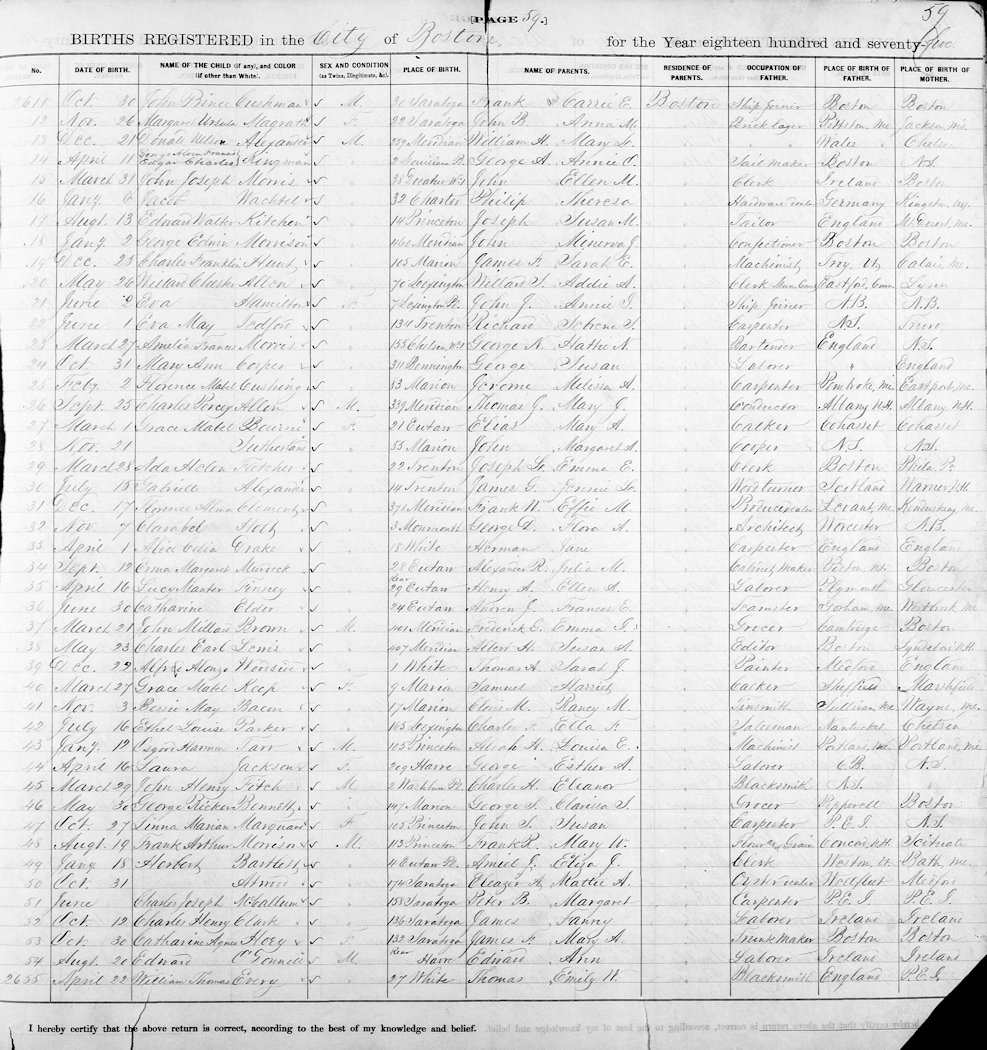 [PAGE 59.]
59
BIRTHS REGISTERED in the City of Boston, for the Year eighteen hundred and seventy-five.
No. DATE OF BIRTH. NAME OF THE CHILD (if any), and COLOR (if other than White). SEX AND CONDITION (as Twins, Illegitimate, &c.) PLACE OF BIRTH. NAME OF PARENTS. RESIDENCE OF PARENTS. OCCUPATION OF FATHER. PLACE OF BIRTH OF FATHER. PLACE OF BIRTH OF MOTHER.
2611 Oct. 30 John Prince Cushman S M. 20 Saratoga Frank and Carrie E. Boston Ship Joiner Boston Boston
12 Nov. 26 Margaret Ursula Magrath S F. 22 Saratoga John B. Anna M. " Brick layer Pittston, Me. Jackson, Wis.
13 Dec. 21 Donald Alexander S M. 239 Meridian William H. Mary " " Wales " Chelsea
14 April 11 Edgar Charles Kingman S " 2 George A. Annie C. " Sail maker Boston N.S.
15 March 31 John Joseph Morris S " 38 Decatur John Ellen M. " Clerk Ireland Boston
16 Jany. 6 Jacob Wachtel S " 32 Charles Philip Theresa " Hardware dealer Germany Kingston, N.Y.
17 Augt. 13 Edward Walter Kitchen S " 14 Princeton Joseph Susan M. " Tailor England Mt Desert, Me.
18 Jany. 2 George Edwin Morrison S " 460 Meridian John Minerva J. " Confectioner Boston Boston
19 Dec. 25 Charles Franklin Hunt S " 105 Marion James F. Sarah E. " Machinist Troy, Calais, Me.
20 May 26 Willard Chester Allen S " 70 Lexington Willard S. Addie A. " Clerk Eastford, Conn. Lynn
21 June 9 Eva Hamilton S F. 7 Lexington Pl. John J. Annie " Ship Joiner N.B. N.B.
22 June 1 Eva May Tedford S " 134 Trenton Richard " Carpenter N.S. Truro
23 March 27 Amelia Frances Morris S " 155 Chelsea George N. Hattie N. " Bartender England N.S.
24 Oct. 31 Mary Ann Cooper S " 311 Bennington George Susan " Laborer " England
25 Feby. 2 Florence Mabel Cushing S " 83 Marion Jerome Melissa A. " Carpenter Pembroke, Me. Eastport, Me.
26 Sept. 25 Charles Percey Allen S M. 339 Meridian Thomas J. Mary J. " Conductor Albany N.H. Albany, N.H.
27 March 1 Grace Mabel Bourne S F. 21 Eutaw Elias Mary A. " Calker Cohasset Cohasset
28 Nov. 21 Sutherland S " 55 Marion John Margaret A. " Cooper N.S. N.S.
29 March 28 Ada Helen Fletcher S " 22 Trenton Joseph Emma E. " Clerk Boston Phila. Pa
30 July 15 Gabriell Alexander S " 14 Trenton James G. Jennie " Wood turner Scotland Warner N.H.
31 Dec. 17 Florence Alma Clements S " 376 Meridian Frank W. Effie M. " Produce dealer Levant, Me. Kenduskeag, Me.
32 Nov. 7 Clarabel Holt S " 3 Monmouth George D. Flora A. " Architect Worcester N.B.
33 April 1 Alice Celia Drake S " 18 White Herman Jane " Carpenter England England
34 Sept. 12 Erma Margaret Murdock S " 28 Eutaw Alexander R. Julia M. " Cabinet Maker Pictou, N.S. Boston
35 April 16 Lucy Manter Finney S " Rear 29 Eutaw Henry A. Ellen A. " Laborer Plymouth Gloucester
36 June 30 Catharine Elder S " 24 Eutaw Andrew J. Frances E. " Teamster Gorham, Me. Westbrook Me.
37 March 21 John Millard Brown S M. 401 Meridian Frederick G. Emma " Grocer Cambridge Boston
38 May 23 Charles Earl Lewis S " 407 Meridian Allen H. Susan A. " Editor Boston Lyndeboro N.H.
39 Dec. 22 Alfred Alonzo S " 1 White Thomas H. Sarah J. " Painter Medford England
40 March 27 Grace Mabel Keep S F. 9 Marion Samuel Harriet " Calker Sheffield Marshfield
41 Nov. 3 Bessie May Bacon S " 17 Marion Clovis M. Nancy M. " Tinsmith Sullivan, Me. Wayne, Me.
42 July 16 Ethel Louise Parker S " 165 Lexington Charles Ella F. " Salesman Nantucket Chelsea
43 Jany. 12 Osgood Harmon Tarr S M. 105 Princeton Louisa E. " Machinist Portland, Me. Portland, Me.
44 April 16 Laura Jackson S F. 209 Havre George Esther A. " Laborer C.B. N.S.
45 March 29 John Henry Fitch S M. 2 Charles H. Eleanor " Blacksmith N.S. "
46 May 30 George Ricker Bennett S " 147 Marion George S. Clarissa S. " Grocer Pepperell Boston
47 Oct. 27 Linna Marian Marquand S F. 105 Princeton John S. Susan " Carpenter P.E.I. N.S.
48 Augt. 19 Frank Arthur Morrison S M. 113 Princeton Frank R. Mary W. " Flour & Grain Concord, N.H. Scituate
49 Jany. 18 Herbert Bartlett S " 4 Eutaw Pl. Amiel J. Eliza J. " Clerk Weston, Vt. Bath, Me.
50 Oct. 31 S " 174 Saratoga Eleazer H. Mattie A. " Oyster dealer Wellfleet Medford
51 June Charles Joseph McCallum S " 158 Saratoga Peter B. Margaret " Carpenter P.E.I. P.E.I.
52 Oct. 12 Charles Henry Clark S " 136 Saratoga James Fanny " Laborer Ireland Ireland
53 Oct. 30 Catharine Agnes Hoey S F. 132 Saratoga James F. Mary A. " Trunk Maker Boston Boston
54 Augt. 20 Edward O'Donnell S M. Rear Havre Edward Ann " Laborer Ireland Ireland
2655 April 22 William Thomas Every S " 27 White Thomas Emily W. " Blacksmith England P.E.I.
I hereby certify that the above return is correct, according to the best of my knowledge and belief.